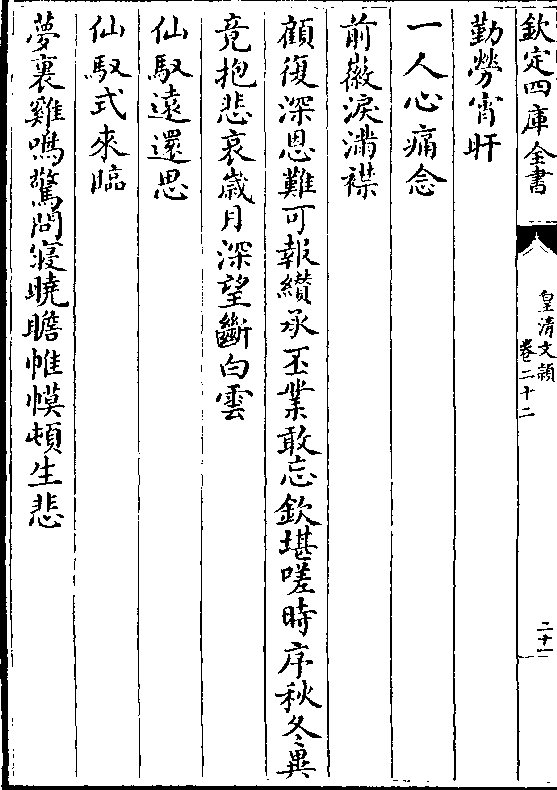 欽定四庫全書
皇清文頴
卷二十二
二十一
勤勞宵旰
一人心痛念
前徽淚滿襟
顧復深恩難可報纉承丕業敢忘欽堪嗟時序秋冬異
竟抱悲哀歲月深望斷白雲
仙馭遠還思
仙馭式來臨
夢裏雞鳴驚問寢曉瞻帷幙頓生悲